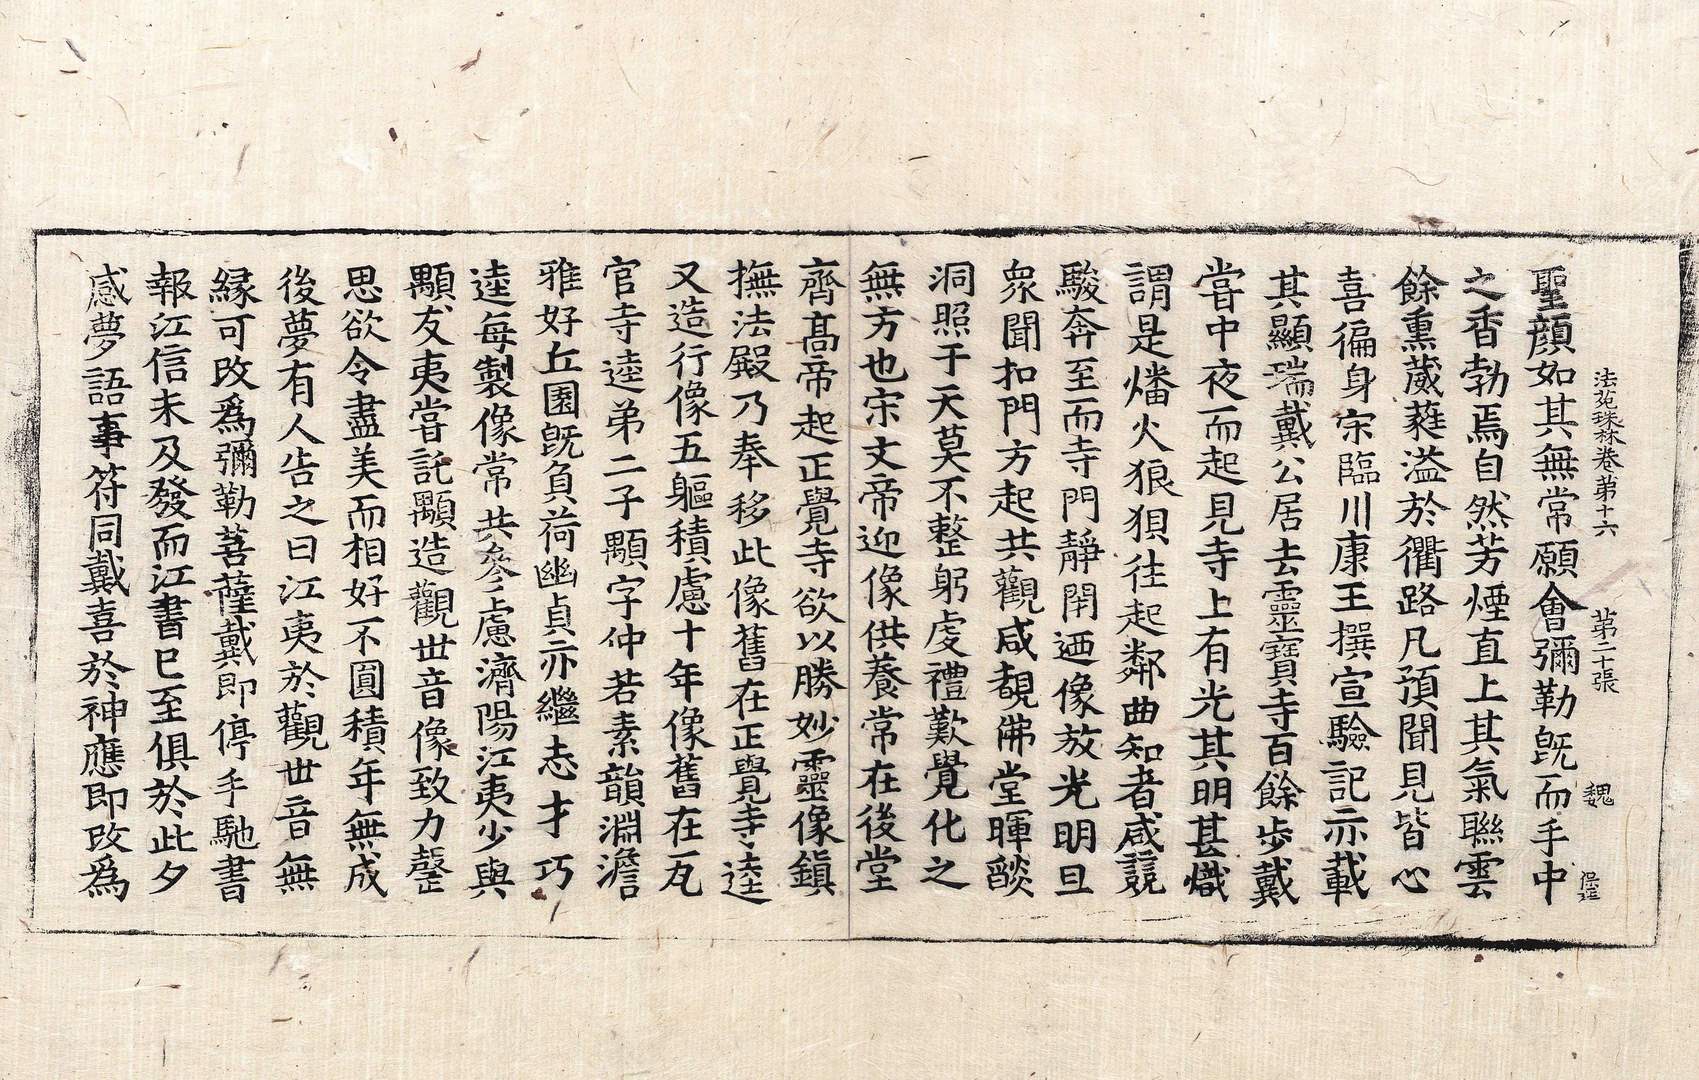 法苑珠林卷第十六 第二十張 魏
聖顔如其無常願會彌勒旣而手中
之香勃焉自然芳煙直上其氣聯雲
餘熏葳蕤溢於衢路凡預聞見皆心
喜徧身宋臨川康王撰宣驗記亦載
其顯瑞戴公居去靈寶寺百餘步戴
甞中夜而起見寺上有光其明甚熾
謂是燔火狼狽往起鄰曲知者咸競
駿奔至而寺門靜閇迺像放光明旦
衆聞扣門方起共觀咸覩佛堂暉燄
洞照于天莫不整躬虔禮歎覺化之
無方也宋文帝迎像供養常在後堂
齊髙帝起正覺寺欲以勝妙靈像鎭
撫法殿乃奉移此像舊在正覺寺逵
又造行像五軀積慮十年像舊在瓦
官寺逵弟二子顒字仲若素韻淵澹
雅好丘園旣負荷幽貞亦繼志才巧
逵每製像常共參慮濟陽江夷少與
顒友夷甞託顒造觀世音像致力罄
思欲令盡美而相好不圓積年無成
後夢有人告之曰江夷於觀世音無
縁可改爲彌勒菩薩戴即停手馳書
報江信未及發而江書已至俱於此夕
感夢語事符同戴喜於神應即改爲